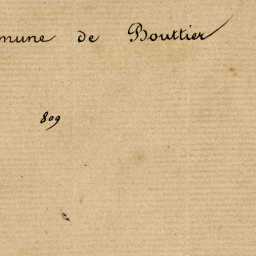 mune de Bouttier
809